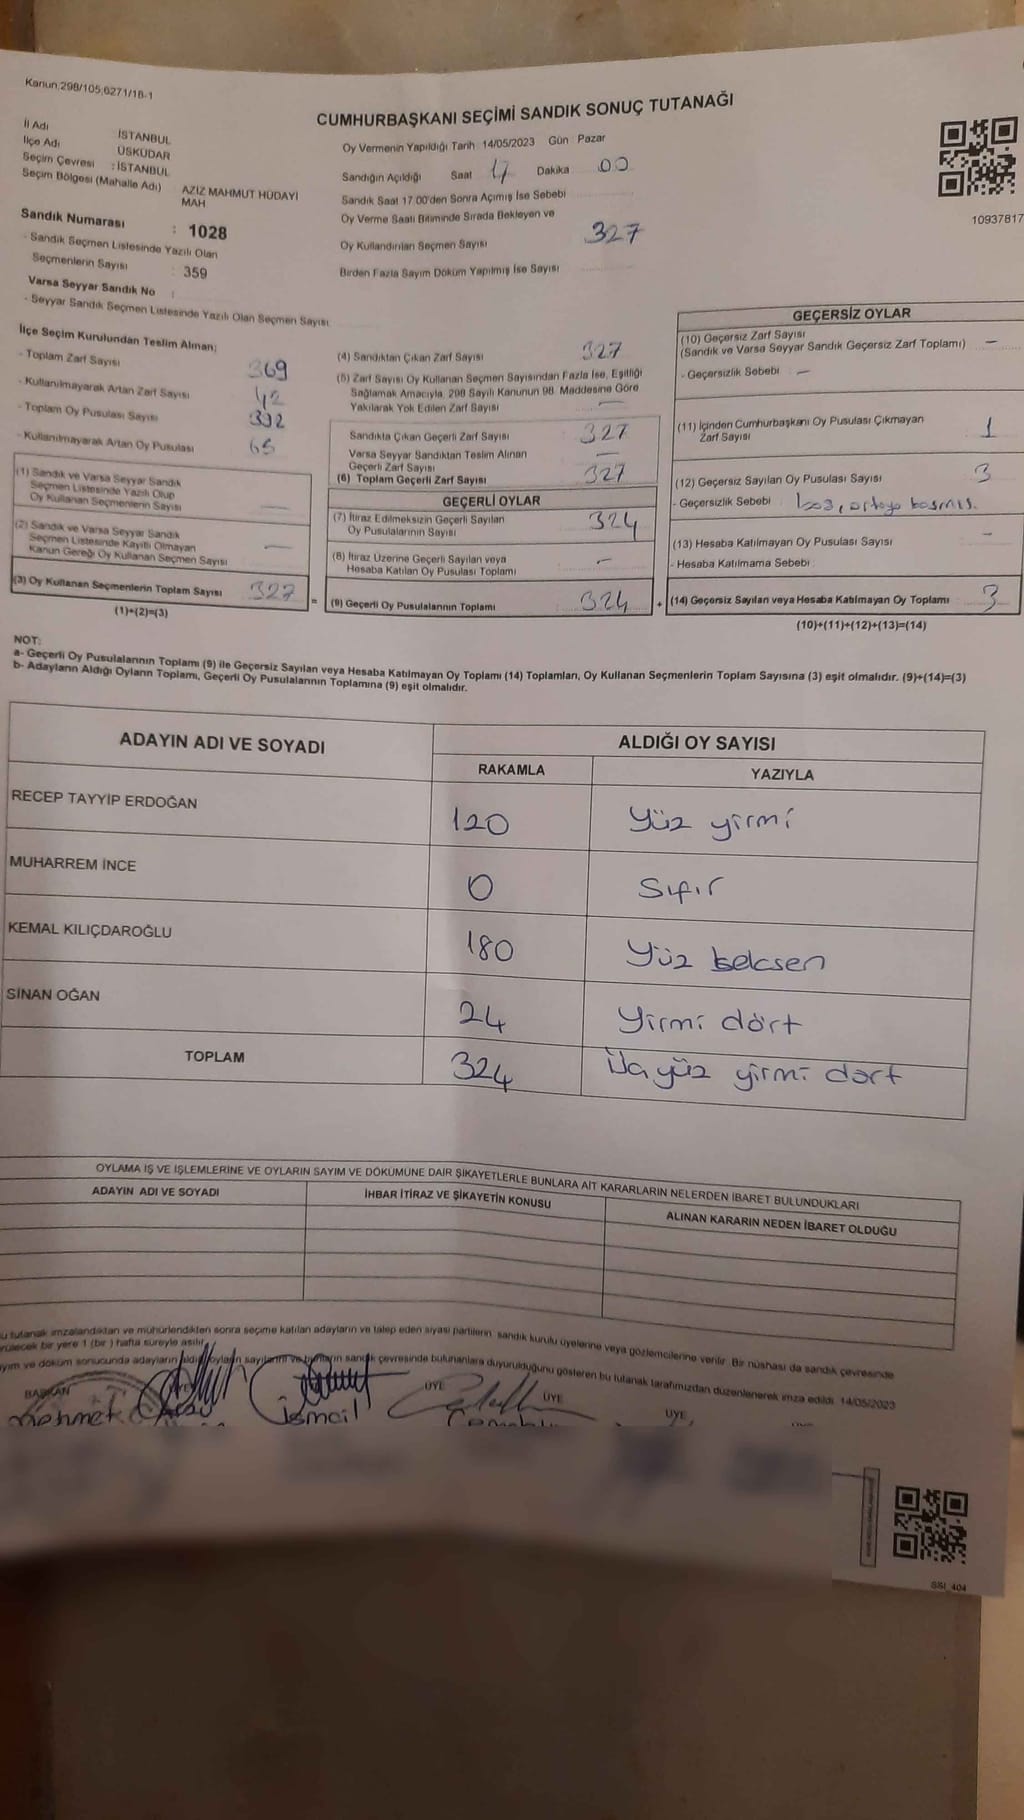 Kanun;298/105;6271/18-1
CUMHURBAŞKANI SEÇİMİ SANDIK SONUÇ TUTANAĞI
İl Adı İSTANBUL
İlçe Adı ÜSKÜDAR
Seçim Çevresi : İSTANBUL
Seçim Bölgesi (Mahalle Adı) AZİZ MAHMUT HÜDAYİ
MAH
Sandık Numarası : 1028
- Sandık Seçmen Listesinde Yazılı Olan
Seçmenlerin Sayısı : 359
Varsa Seyyar Sandık No :
- Seyyar Sandık Seçmen Listesinde Yazılı Olan Seçmen Sayısı
Oy Vermenin Yapıldığı Tarih 14/05/2023 Gün Pazar
Sandığın Açıldığı Saat 17 Dakika 00
Sandık Saat 17.00'den Sonra Açımış İse Sebebi
Oy Verme Saati Bitiminde Sırada Bekleyen ve
Oy Kullandırılan Seçmen Sayısı 327
Birden Fazla Sayım Döküm Yapılmış İse Sayısı
10937817
İlçe Seçim Kurulundan Teslim Alınan;
- Toplam Zarf Sayısı 369
- Kullanılmayarak Artan Zarf Sayısı 42
- Toplam Oy Pusulası Sayısı 392
- Kullanılmayarak Artan Oy Pusulası 65
(1) Sandık ve Varsa Seyyar Sandık
Seçmen Listesinde Yazılı Olup
Oy Kullanan Seçmenlerin Sayısı —
(2) Sandık ve Varsa Seyyar Sandık
Seçmen Listesinde Kayıtlı Olmayan
Kanun Gereği Oy Kullanan Seçmen Sayısı —
(3) Oy Kullanan Seçmenlerin Toplam Sayısı 327
(1)+(2)=(3)
(4) Sandıktan Çıkan Zarf Sayısı 327
(5) Zarf Sayısı Oy Kullanan Seçmen Sayısından Fazla İse, Eşitliği
Sağlamak Amacıyla, 298 Sayılı Kanunun 98. Maddesine Göre
Yakılarak Yok Edilen Zarf Sayısı —
Sandıkta Çıkan Geçerli Zarf Sayısı 327
Varsa Seyyar Sandıktan Teslim Alınan
Geçerli Zarf Sayısı —
(6) Toplam Geçerli Zarf Sayısı 327
GEÇERLİ OYLAR
(7) İtiraz Edilmeksizin Geçerli Sayılan
Oy Pusulalarının Sayısı 324
(8) İtiraz Üzerine Geçerli Sayılan veya
Hesaba Katılan Oy Pusulası Toplamı —
= (9) Geçerli Oy Pusulalarının Toplamı 324
GEÇERSİZ OYLAR
(10) Geçersiz Zarf Sayısı
(Sandık ve Varsa Seyyar Sandık Geçersiz Zarf Toplamı) —
- Geçersizlik Sebebi : —
(11) İçinden Cumhurbaşkanı Oy Pusulası Çıkmayan
Zarf Sayısı 1
(12) Geçersiz Sayılan Oy Pusulası Sayısı 3
- Geçersizlik Sebebi : boş, ortaya basmış.
(13) Hesaba Katılmayan Oy Pusulası Sayısı —
- Hesaba Katılmama Sebebi :
+ (14) Geçersiz Sayılan veya Hesaba Katılmayan Oy Toplamı 3
(10)+(11)+(12)+(13)=(14)
NOT:
a- Geçerli Oy Pusulalarının Toplamı (9) ile Geçersiz Sayılan veya Hesaba Katılmayan Oy Toplamı (14) Toplamları, Oy Kullanan Seçmenlerin Toplam Sayısına (3) eşit olmalıdır. (9)+(14)=(3)
b- Adayların Aldığı Oyların Toplamı, Geçerli Oy Pusulalarının Toplamına (9) eşit olmalıdır.
ADAYIN ADI VE SOYADI ALDIĞI OY SAYISI
RAKAMLA YAZIYLA
RECEP TAYYİP ERDOĞAN 120 Yüz yirmi
MUHARREM İNCE 0 Sıfır
KEMAL KILIÇDAROĞLU 180 Yüz seksen
SİNAN OĞAN 24 Yirmi dört
TOPLAM 324 Üç yüz yirmi dört
OYLAMA İŞ VE İŞLEMLERİNE VE OYLARIN SAYIM VE DÖKÜMÜNE DAİR ŞİKAYETLERLE BUNLARA AİT KARARLARIN NELERDEN İBARET BULUNDUKLARI
ADAYIN ADI VE SOYADI İHBAR İTİRAZ VE ŞİKAYETİN KONUSU ALINAN KARARIN NEDEN İBARET OLDUĞU
u tutanak imzalandıktan ve mühürlendikten sonra seçime katılan adayların ve talep eden siyasi partilerin sandık kurulu üyelerine veya gözlemcilerine verilir. Bir nüshası da sandık çevresinde
rülecek bir yere 1 (bir) hafta süreyle asılır.
yım ve döküm sonucunda adayların aldığı oyların sayılarını ve sandık çevresinde bulunanlara duyurulduğunu gösteren bu tutanak tarafımızdan düzenlenerek imza edildi. 14/05/2023
BAŞKAN ÜYE ÜYE ÜYE
Mehmet İsmail
SSI_404